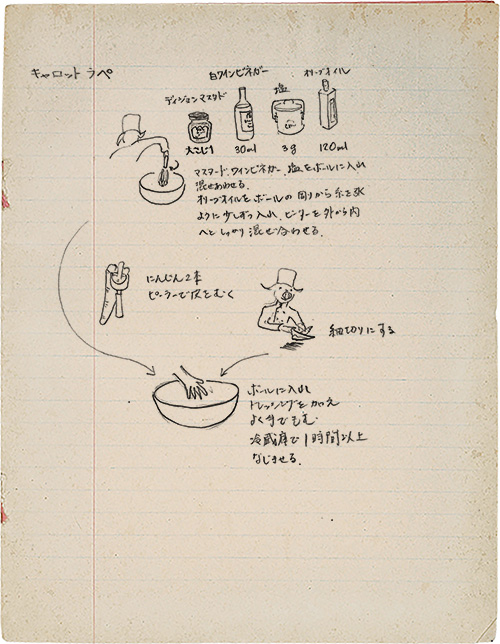 キャロット ラペ
白ワインビネガー
オリーブオイル
ディジョンマスタード
塩
大こじ1
30ml
3g
120ml
マスタード、ワインビネガー、塩をボールに入れ
混ぜあわせる。
オリーブオイルをボールの周りから糸を
ように少しずつ入れ、ビーターを外から内
へとしっかり混ぜ合わせる。
にんじん2本
ピーラーで皮をむく
細切りにする
ボールに入れ
ドレッシングを加え
よく手でもむ
冷蔵庫で1時間以上
なじませる。